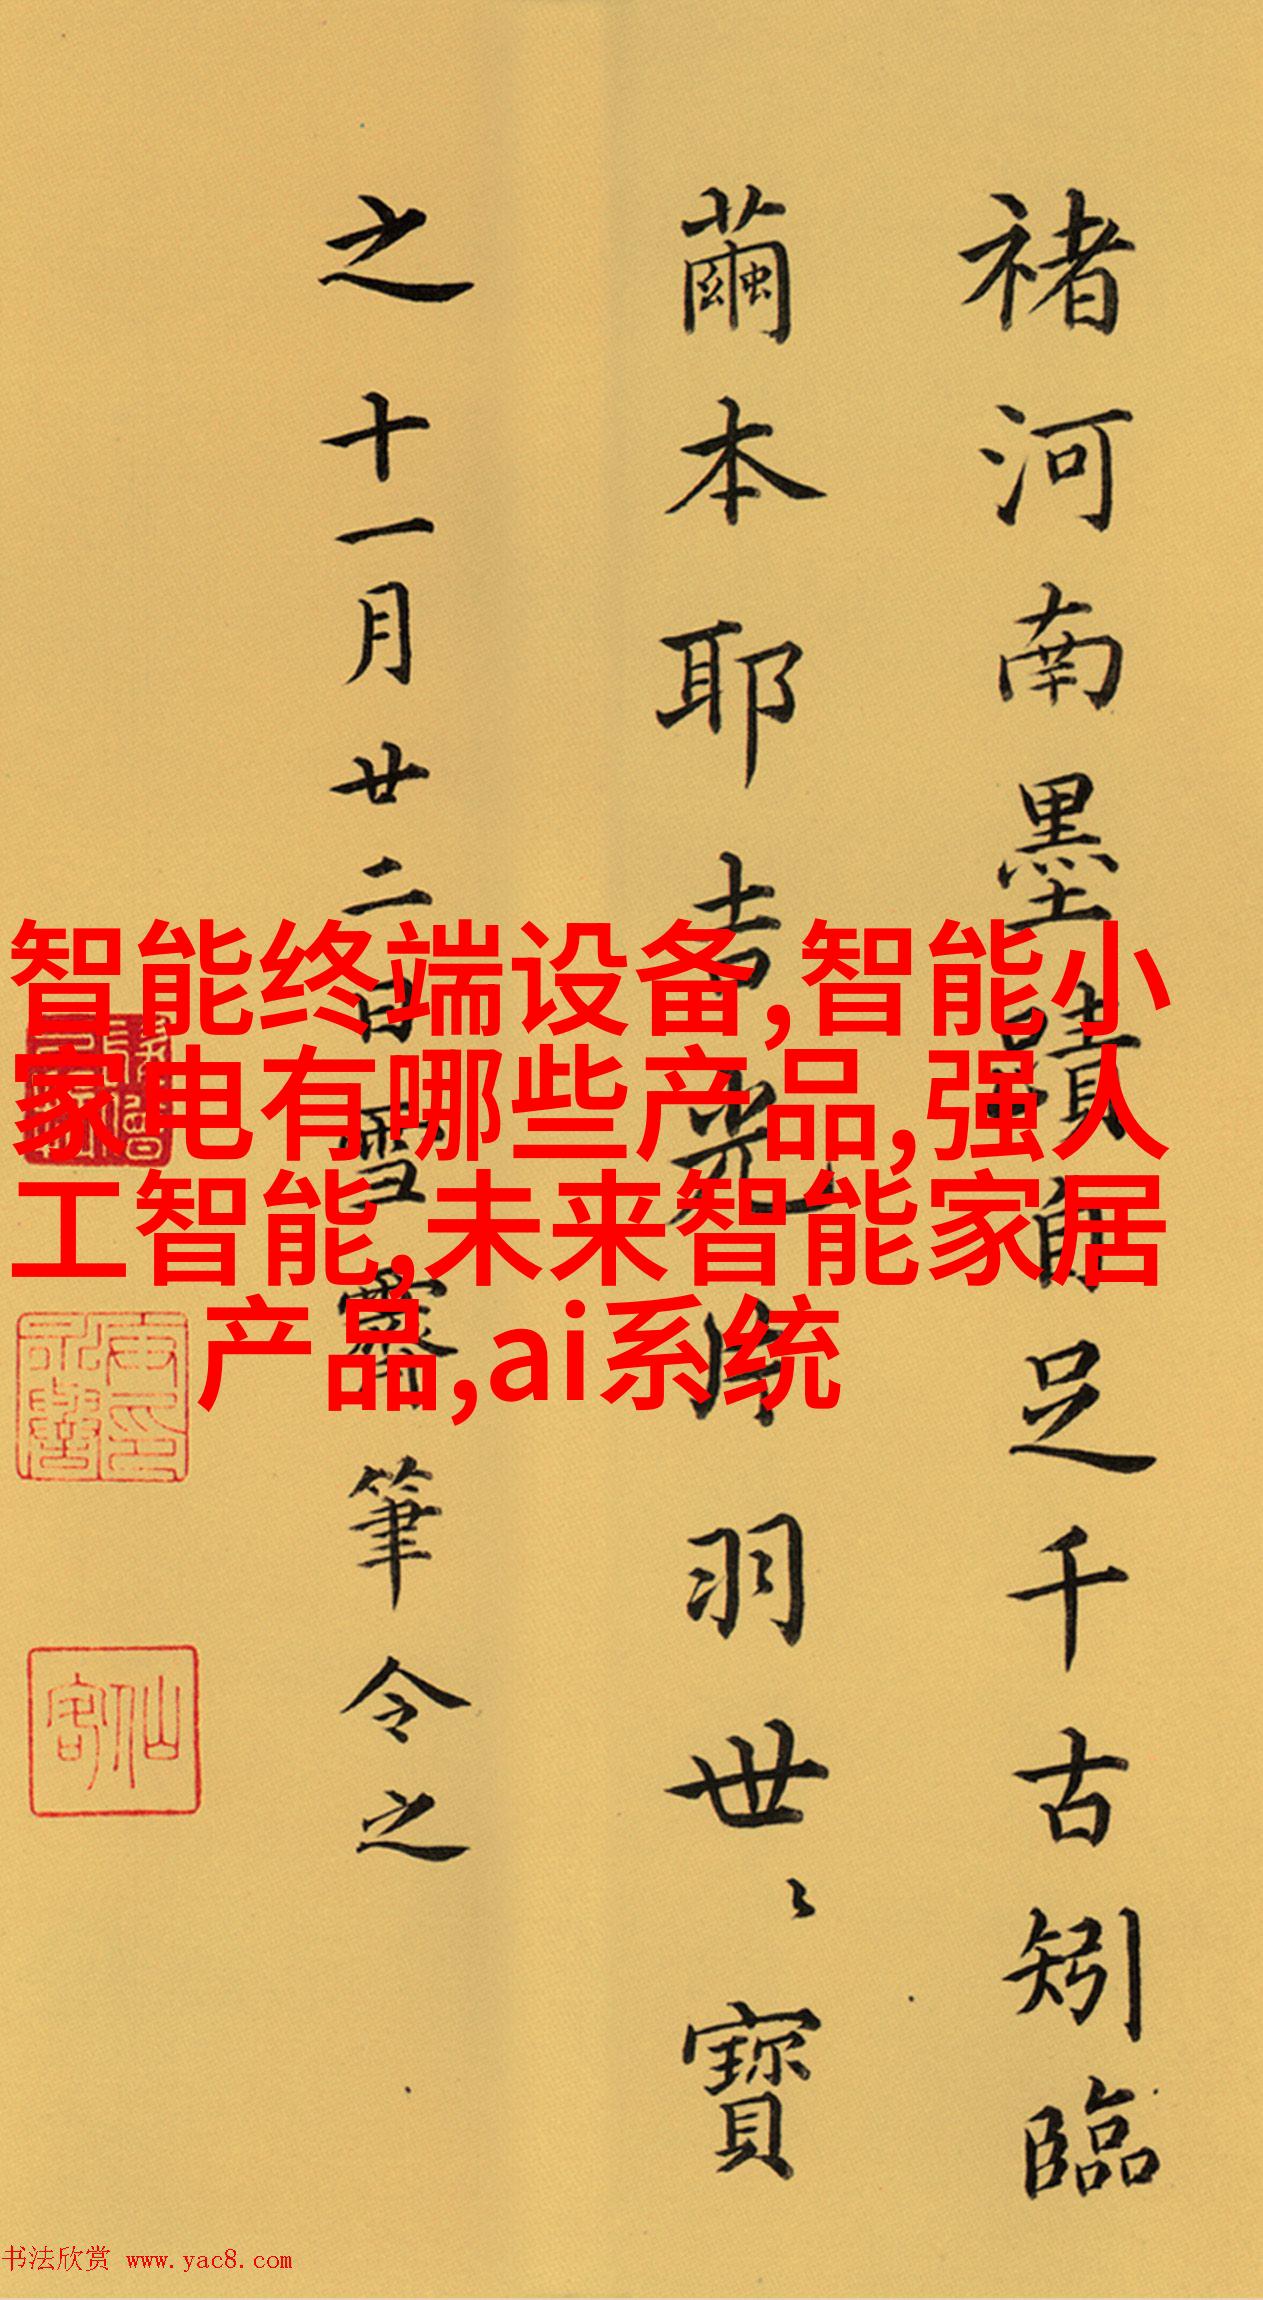 褚河南墨蹟自足千古矧臨
繭本耶吉光片羽世〻寶
之十一月廿二日雪霽筆令之
智能终端设备,智能小
家电有哪些产品,强人
工智能,未来智能家居
产品,ai系统
仙客
书法欣赏 www.yac8.com